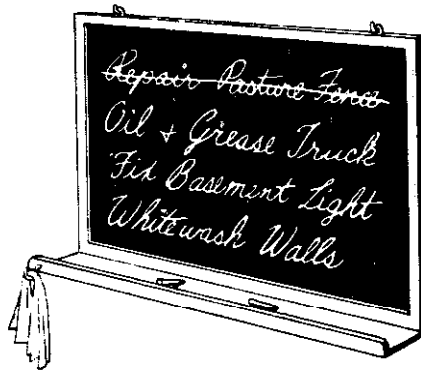 Repair Pasture Fence
Oil + Grease Truck
Fix Basement Light
Whitewash Walls